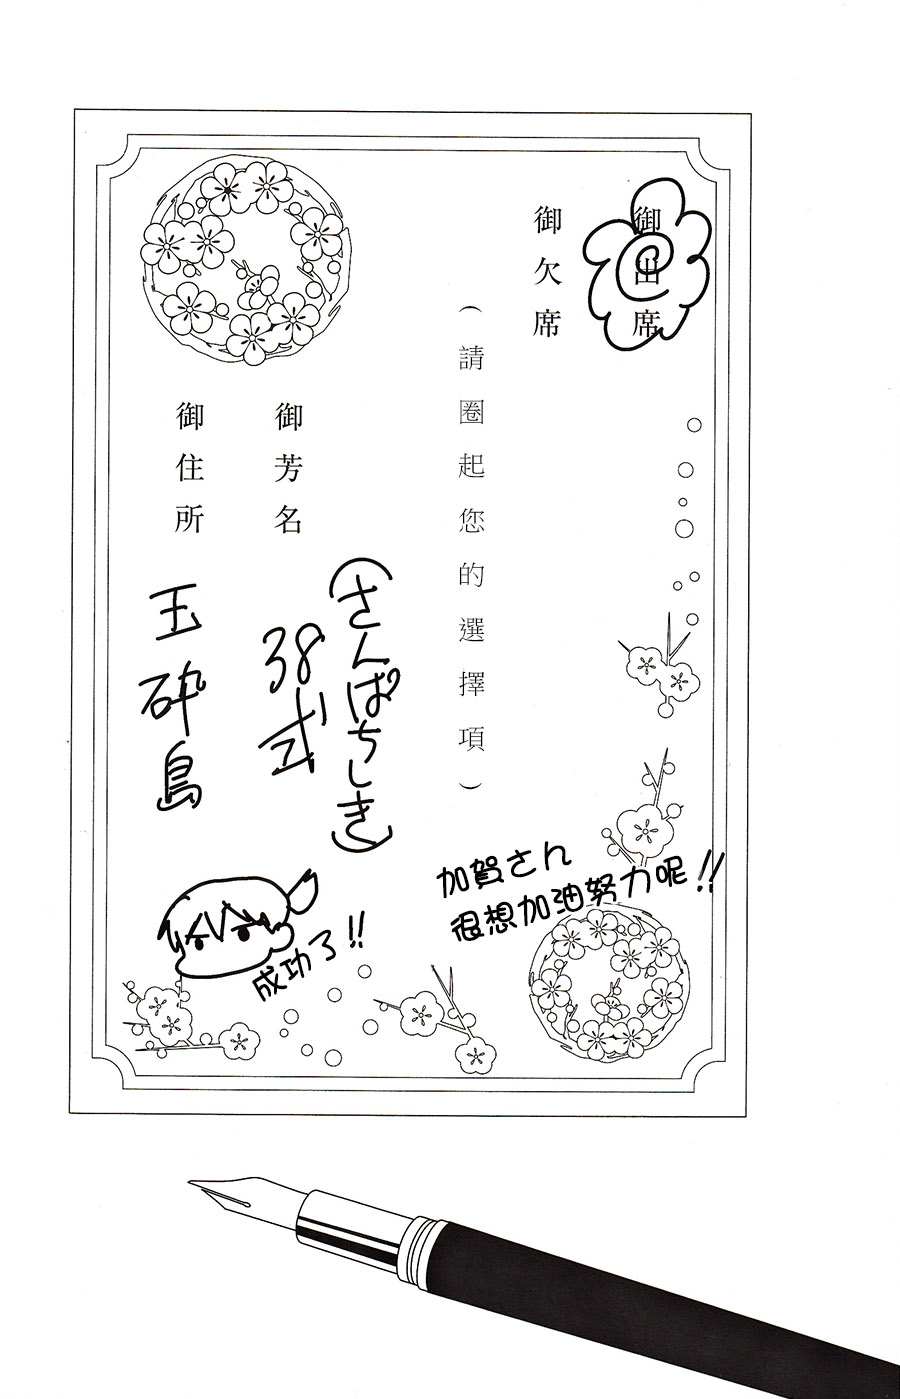 御出席
御欠席
（請圈起您的選擇項）
御芳名
（さんぱちしき）
38式
御住所
玉砕島
加賀さん
很想加油努力呢!!
成功了!!